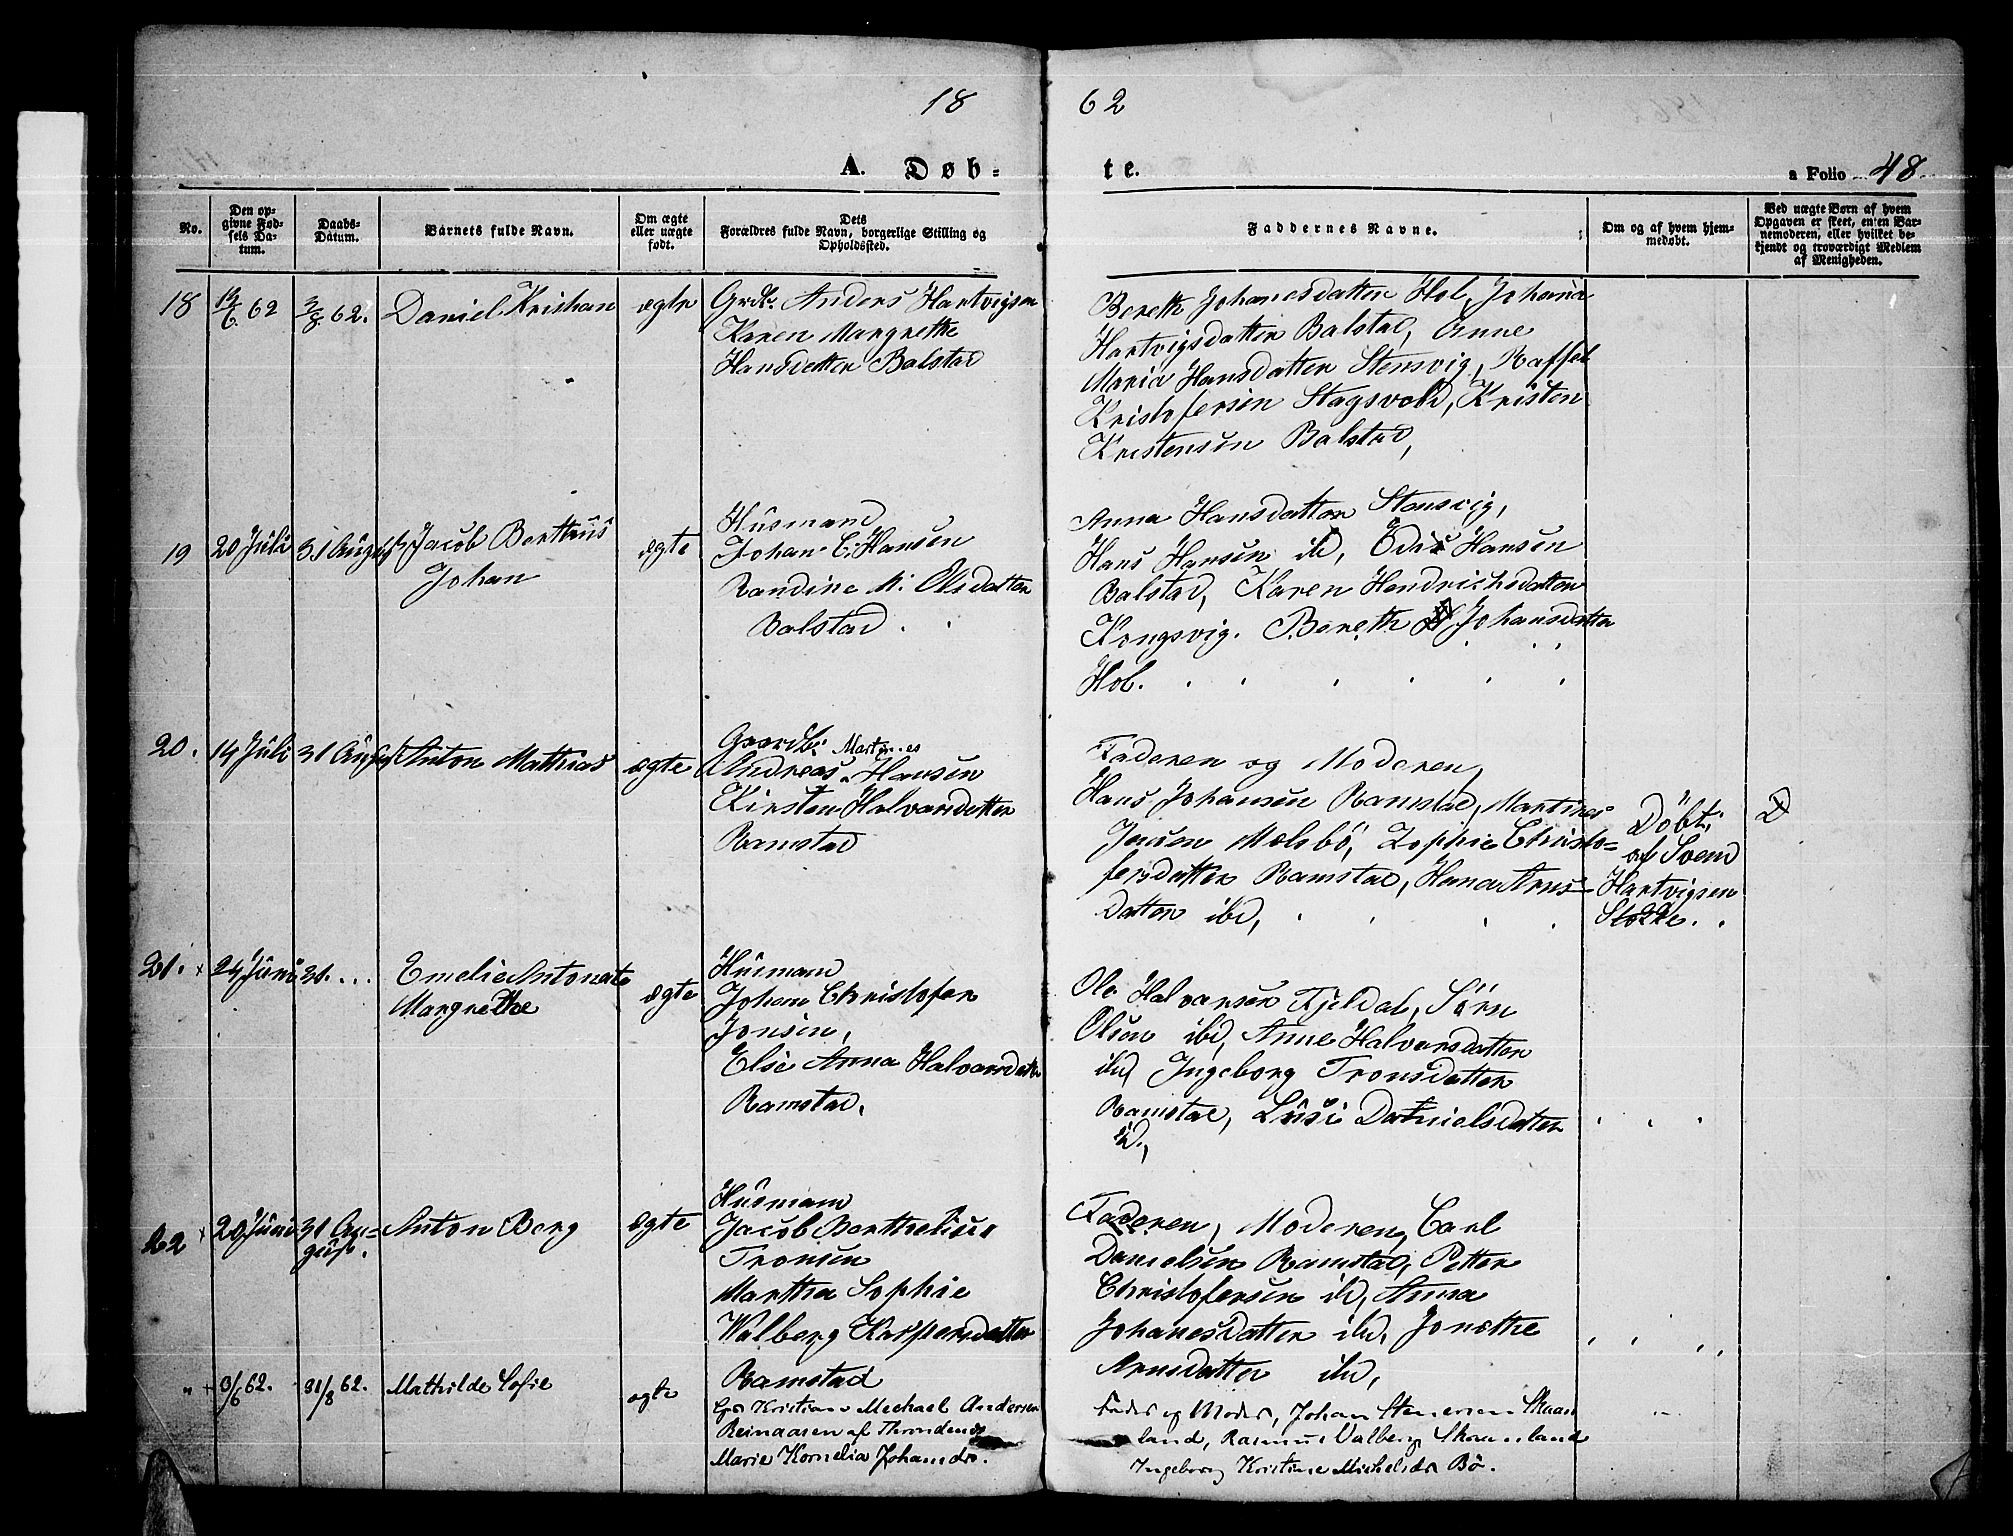 18 62
A. Døb- te.
a Folio 48.
No.
Den op-
givne Fød-
sels Da-
tum.
Daabs-
Datum.
Barnets fulde Navn.
Om ægte
eller uægte
født.
Dets
Forældres fulde Navn, borgerlige Stilling og
Opholdssted.
Faddernes Navne.
Om og af hvem hjem-
medøbt.
Ved uægte Børn af hvem
Opgaven er skeet, enten Bar-
nemoderen, eller hvilket be-
kjendt og troværdigt Medlem
af Menigheden.
18 12/6 62 3/8 62. Daniel Krishan ægte
Grdbr. Anders Hartvigsen
Karen Margrethe
Hansdatter Balstad
Bereth Johanesdatter Hol, Johana
Hartvigsdatter Balstad, Anne
Maria Hansdatter Stensvig, Raffel
Kristofersen Stagsvold, Kristen
Kristensen Balstad,
19 20 Juli 31 August Jacob Bertheus
Johan
ægte
Husmand
Johan C. Hansen
Randine M. Olsdatter
Balstad
Anna Hansdatter Stensvig,
Hans Hansen ibd, Hansen
Balstad, Karen Hendrichsdatter
Kongsvig. Bereth Johansdatter
Hol.
20. 14 Juli 31 August Anton Mathias ægte
Gaardbr. Martines
Andreas Hansen
Kirsten Halvarsdatter
Ramstad
Faderen og Moderen,
Hans Johansen Ramstad, Martines
Jensen Melsbö, Zophie Christo=
fersdatter Ramstad, Hana Arns-
datter ibd,
Döbt
af Svend
Hartvigsen
Stokke.
21. 24 Juni 31. ... Emelie Antonete
Margrethe
ægte
Husmand
Johan Christofer
Jensen,
Else Anna Halvarsdatter
Ramstad.
Ole Halvarsen Fjeldal, Sörn
Olsen ibd, Anne Halvarsdatter
ibd, Ingeborg Tronsdatter
Ramstad, Lusi Danielsdatter
ibd,
22 20 Juni 31 Au=
gust.
Anton Berg ægte
Husmand
Jacob Berthelius
Tronsen
Marthea Sophie
Walberg Kaspersdatter
Ramstad
Faderen, Moderen, Carl
Danielsen Ramstad, Petter
Christofersen ibd, Anna
Johanesdatter ibd, Jonethe
Arnsdatter ibd,
" 3/6 62. 31/8 62. Mathilde Sofie ægte
Kristian Mechael Andersen
Reinaasen af Throndenes
Marie Kornelia Johansdr.
Fader og Moder, Johan Stenersen Skaan
land, Rasmus Valberg Skaanland
Ingeborg Kristine Michelsdr Bö.